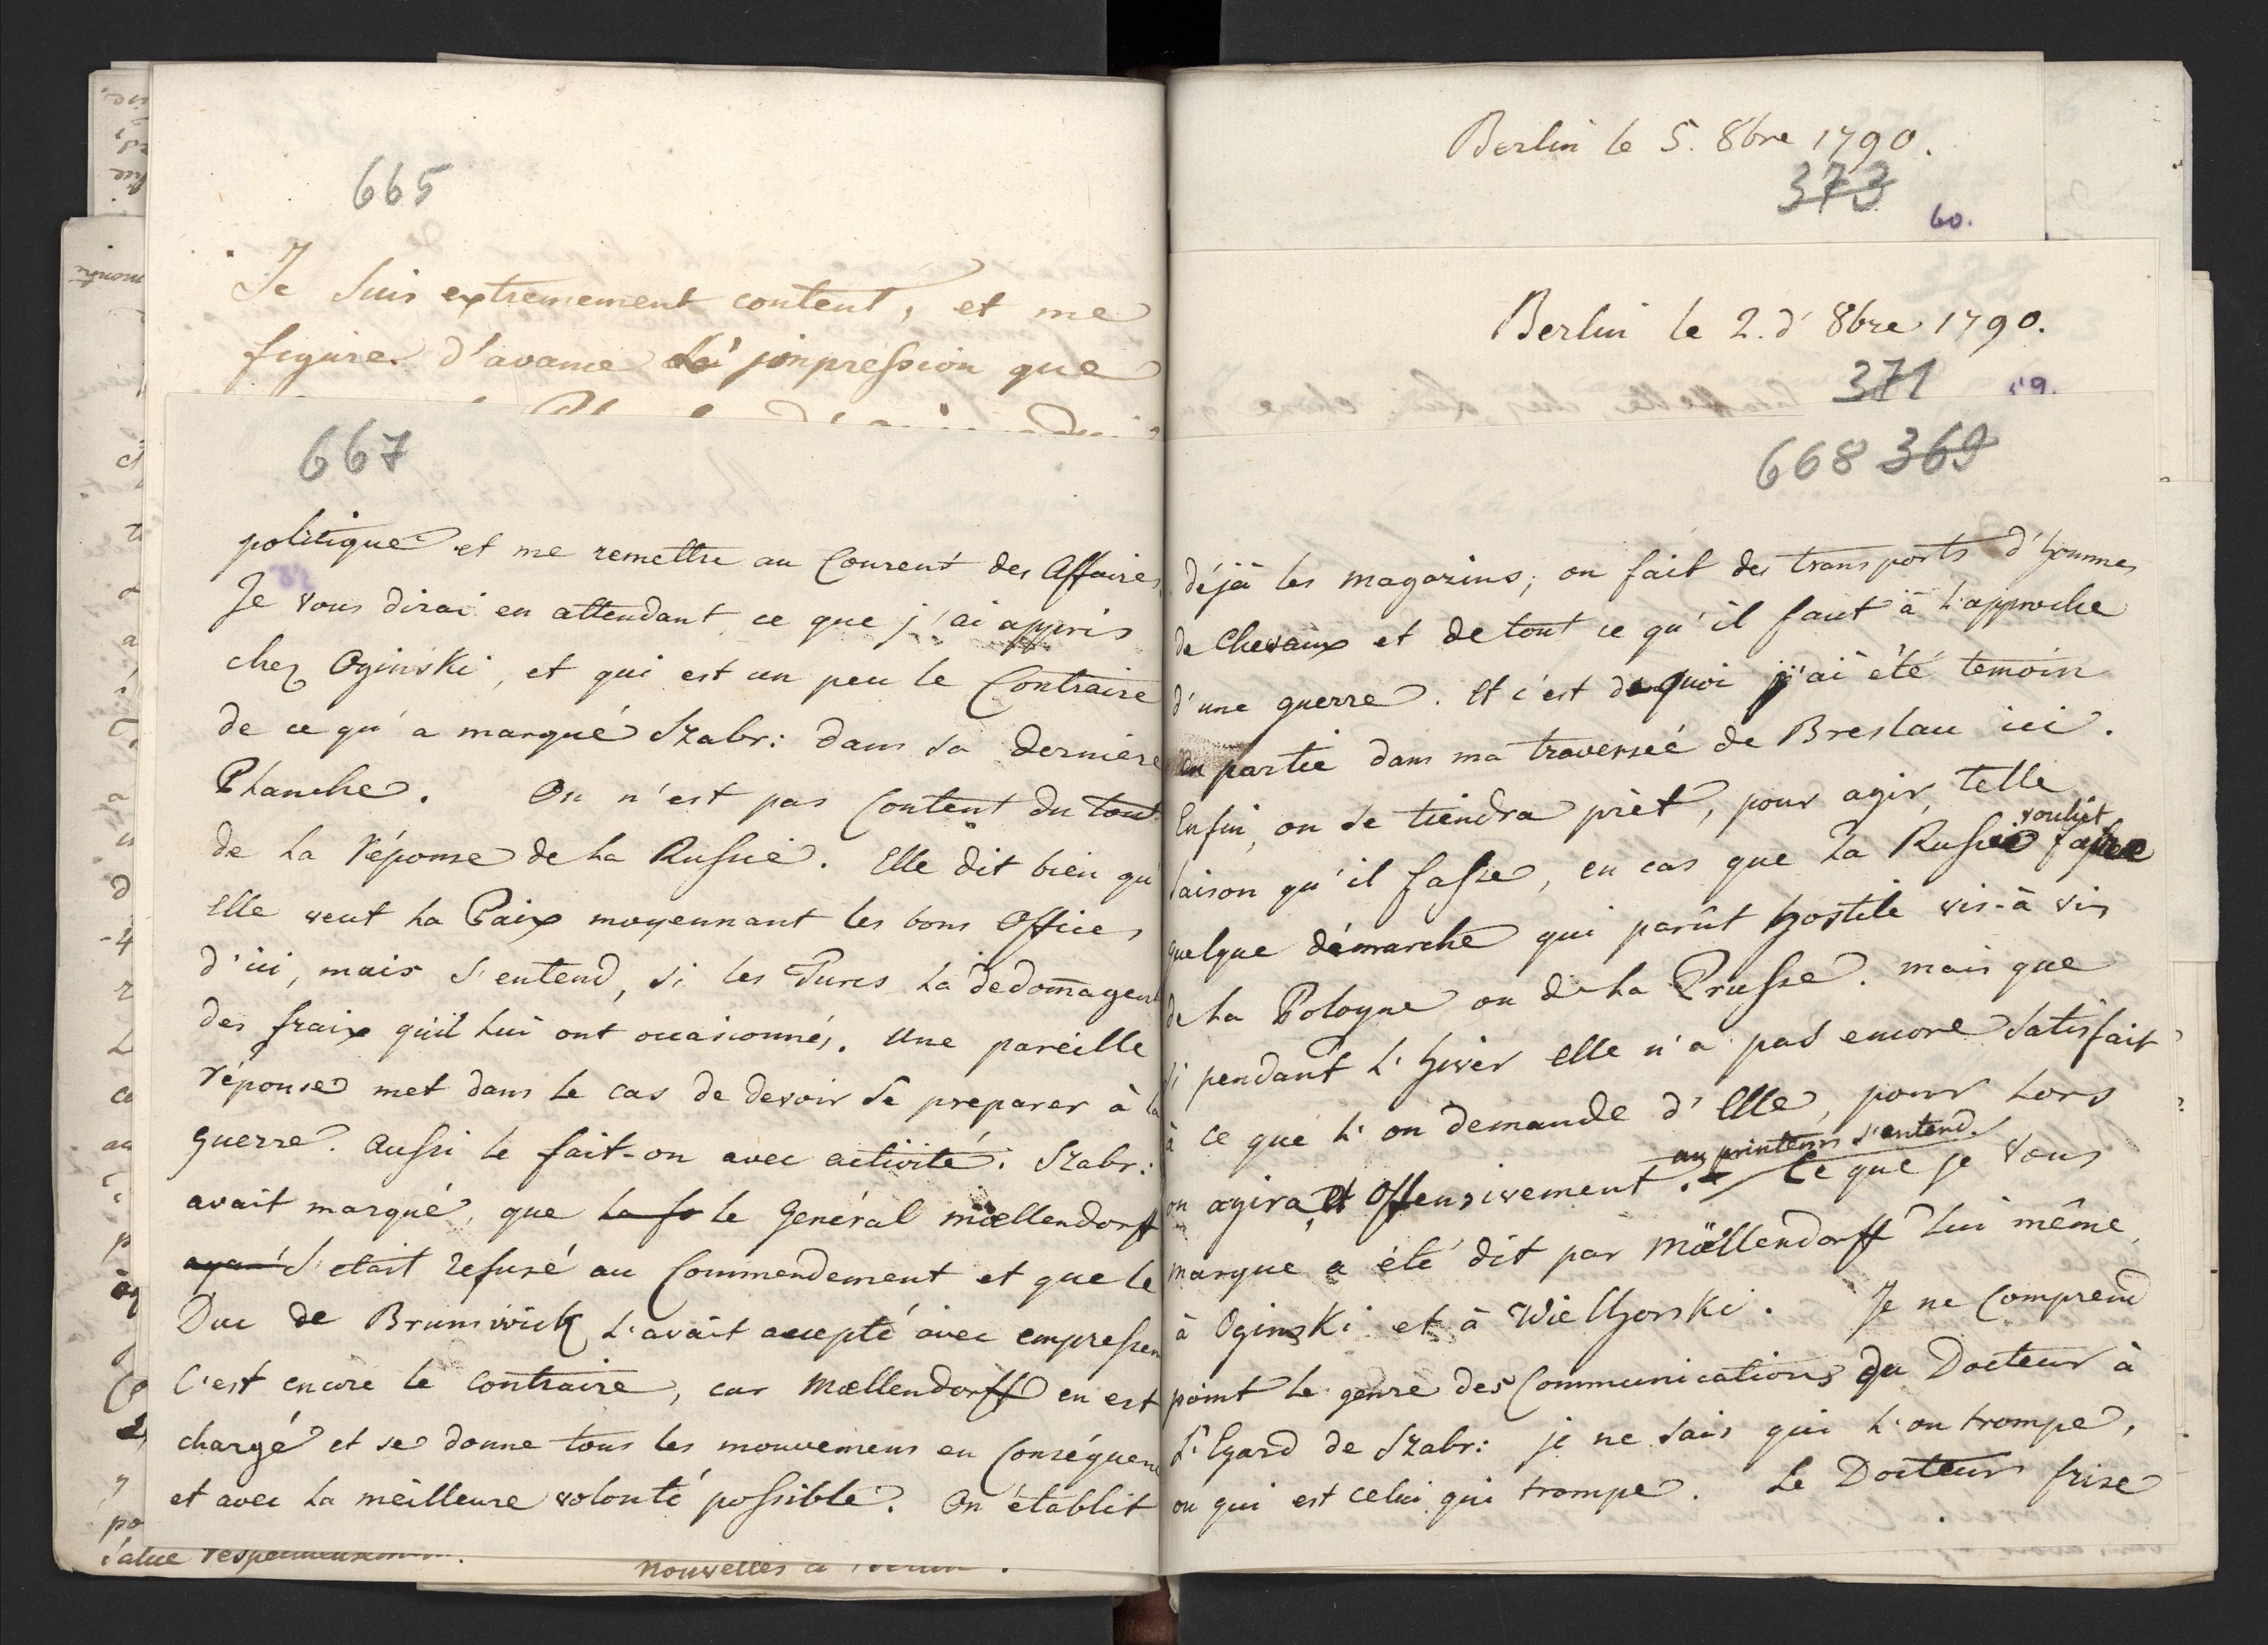 665
Je suis extremement content, et me
figure d'avance l'impression que
667
politique et me remettre au Courent des Affaires,
Je vous dirai en attendant ce que j'ai appris
chez Oginski, et qui est un peu le Contraire
de ce qu'a marqué Szabr: dans sa dernière
Planche. On n'est pas Content du tout
de la réponse de la Russie. Elle dit bien qu'
Elle veut la Paix moyennant les bons Offices
d'ici, mais s'entend, si les Turcs la dedom̄agent
des fraix qu'il lui ont occasionnés. Une pareille
réponse met dans le cas de devoir se preparer à la
guerre. Aussi le fait-on avec activité. Szabr:
avait marqué, que la so le Général moellendorff
ayant s'etait refusé au Commendement et que le
Duc de Brunswick l'avait accepté avec empressem
C'est encore le contraire, car Moellendorff en est
chargé et se donne tous les mouvemens en Conséquen
et avec la meilleure volonté possible. On établit
salue
nouvelles a
Berlin le 5. 8bre 1790.
373
60.
Berlin le 2. d' 8bre 1790.
371 59.
668 369
déjà les magazins; on fait des transports d'hommes
de Chevaux et de tout ce qu'il faut à l'approche
d'une guerre. Et c'est de quoi j'ai été temoin
en partie dans ma traverseé de Breslau ici.
Enfin, on se tiendra prèt, pour agir, telle
voulut
saison qu'il fasse, en cas que la Russie fasse
quelque démarche qui parût hostile vis-à vis
de la Pologne ou de la Prusse. mais que
si pendant l'hiver elle n'a pas encore satisfait
à ce que l'on demande d'Elle, pour lors
au printems s'entend.
on agira et Offensivement. Ce que je vous
marque a été dit par Möellendorff lui même,
à Oginski et à Wielhorski. Je ne Comprend
point le genre des Communications du Docteur à
l'Egard de Szabr: je ne sais qui l'on trompe,
ou qui est celui qui trompe. Le Docteur frise